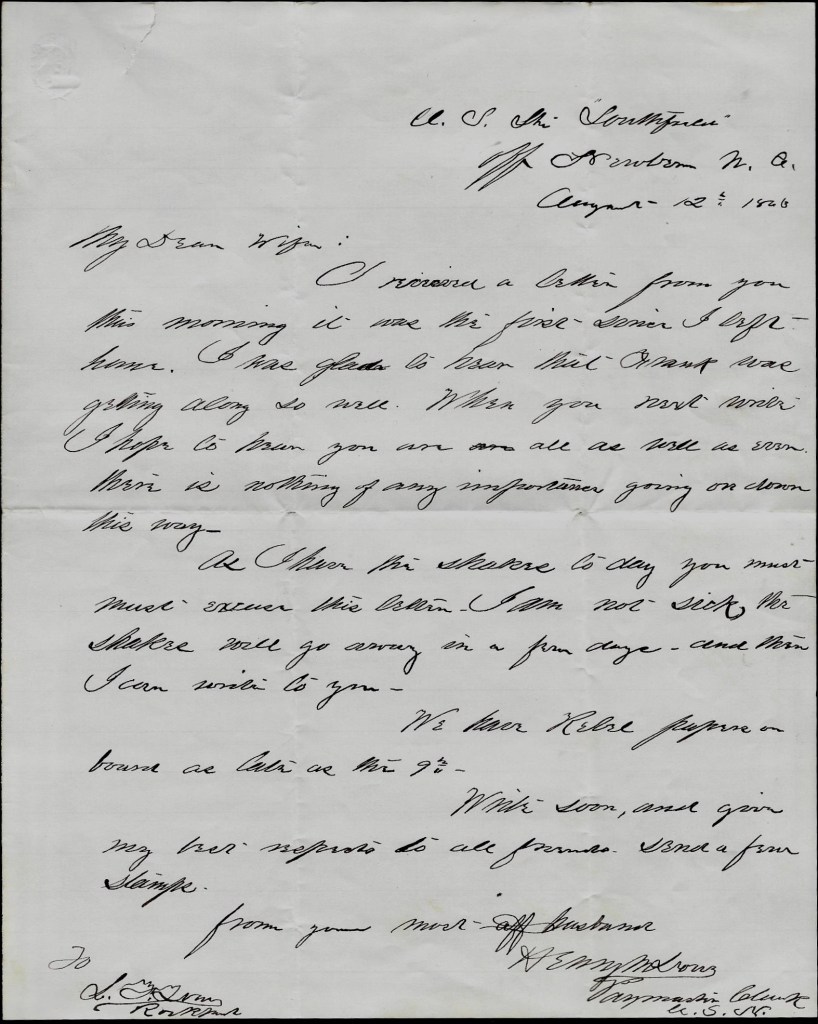 U. S. Str "Southfield"
off Newbern N. C.
August 12th
My Dear Wife:
I received a letter from you
this morning it was the first since I left
home. I was glad to hear that Frank was
getting along so well. When you next write
I hope to hear you are all as well as ever.
there is nothing of any importance going on down
this way—
As I have the shakes to day you must
must excuse this letter - I am not sick, the
shakes will go away in a few days - and then
I can write to you -
We have Rebel papers on
board as late as the 9th -
Write soon, and give
my best respects to all friends. Send a few
stamps.
from your most aff husband
Henry
To
Paymaster Clerk
Rockport
U. S. N.